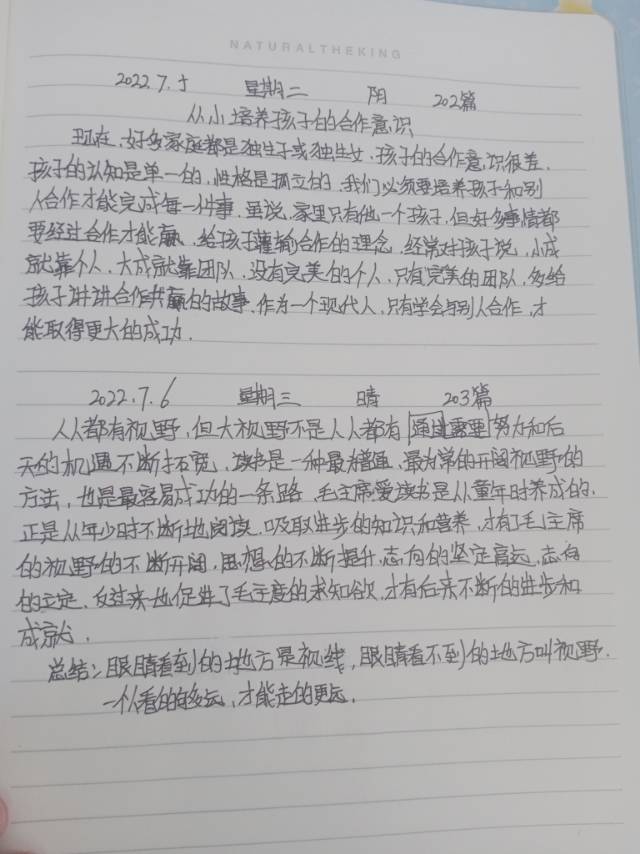 NATURALTHEKING
2022.7.5 星期二 阴 202篇
从小培养孩子的合作意识
现在,好多家庭都是独生子或独生女,孩子的合作意识很差,
孩子的认知是单一的,性格是孤立的,我们必须要培养孩子和别
人合作才能完成每一件事,虽说,家里只有他一个孩子,但好多事情都
要经过合作才能赢,给孩子灌输合作的理念,经常对孩子说,小成
就靠个人,大成就靠团队,没有完美的个人,只有完美的团队,多给
孩子讲讲合作共赢的故事,作为一个现代人,只有学会与别人合作,才
能取得更大的成功.
2022.7.6 星期三 晴 203篇
人人都有视野,但大视野不是人人都有 需要努力和后
天的机遇不断拓宽,读书是一种最为普通,最为常的开阔视野的
方法,也是最容易成功的一条路,毛主席爱读书是从童年时养成的,
正是从年少时不断地阅读,吸取进步的知识和营养,才有了毛主席
的视野的不断开阔,思想的不断提升,志向的坚定高远,志向
的立定,反过来也促进了毛主席的求知欲,才有后来不断的进步和
成就.
总结:眼睛看到的地方是视线,眼睛看不到的地方叫视野.
一个人看的够远,才能走的更远.